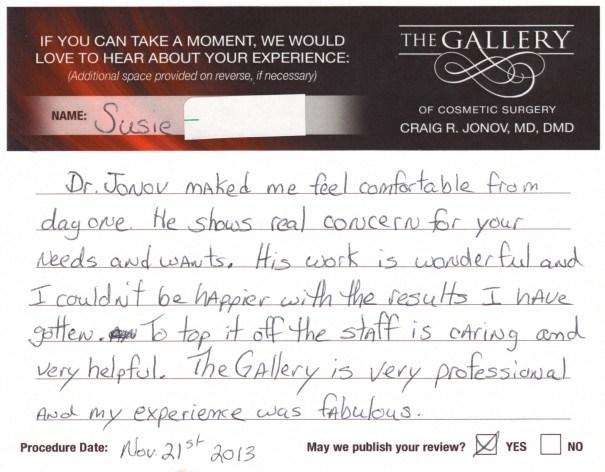 IF YOU CAN TAKE A MOMENT, WE WOULD
LOVE TO HEAR ABOUT YOUR EXPERIENCE:
(Additional space provided on reverse, if necessary)
NAME: Susie
THE GALLERY
OF COSMETIC SURGERY
CRAIG R. JONOV, MD, DMD
Dr. Jonov maked me feel comfortable from
day one. He shows real concern for your
needs and wants. His work is wonderful and
I couldn't be happier with the results I have
gotten. To top it off the staff is caring and
very helpful. The Gallery is very professional
and my experience was fabulous.
Procedure Date: Nov. 21st 2013
May we publish your review? YES NO